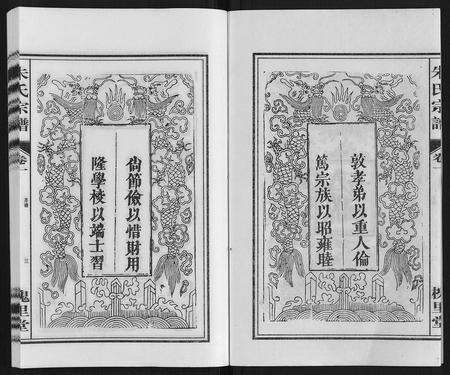 朱氏宗譜
卷一
槐里堂
敦孝弟以重人倫
篤宗族以昭雍睦
尚節儉以惜財用
隆學校以端士習
朱氏宗譜
卷一
三
槐里堂